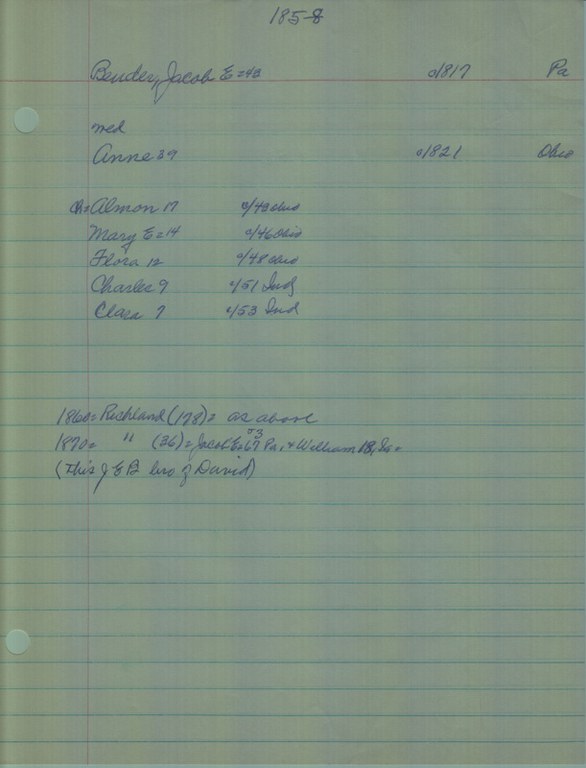 185-8
Bender, Jacob E = 43 c/1817 Pa
med
Anne 39 c/1821 Ohio
ch = Almon 17 c/43 Ohio
Mary E = 14 c/46 Ohio
Flora 12 c/48 Ohio
Charles 9 c/51 Ind
Clara 7 c/53 Ind
1860 = Richland (178) = as above
53
1870 = " (36) = Jacob E = 67 Pa, & William 18,
(This J E B bro of David)